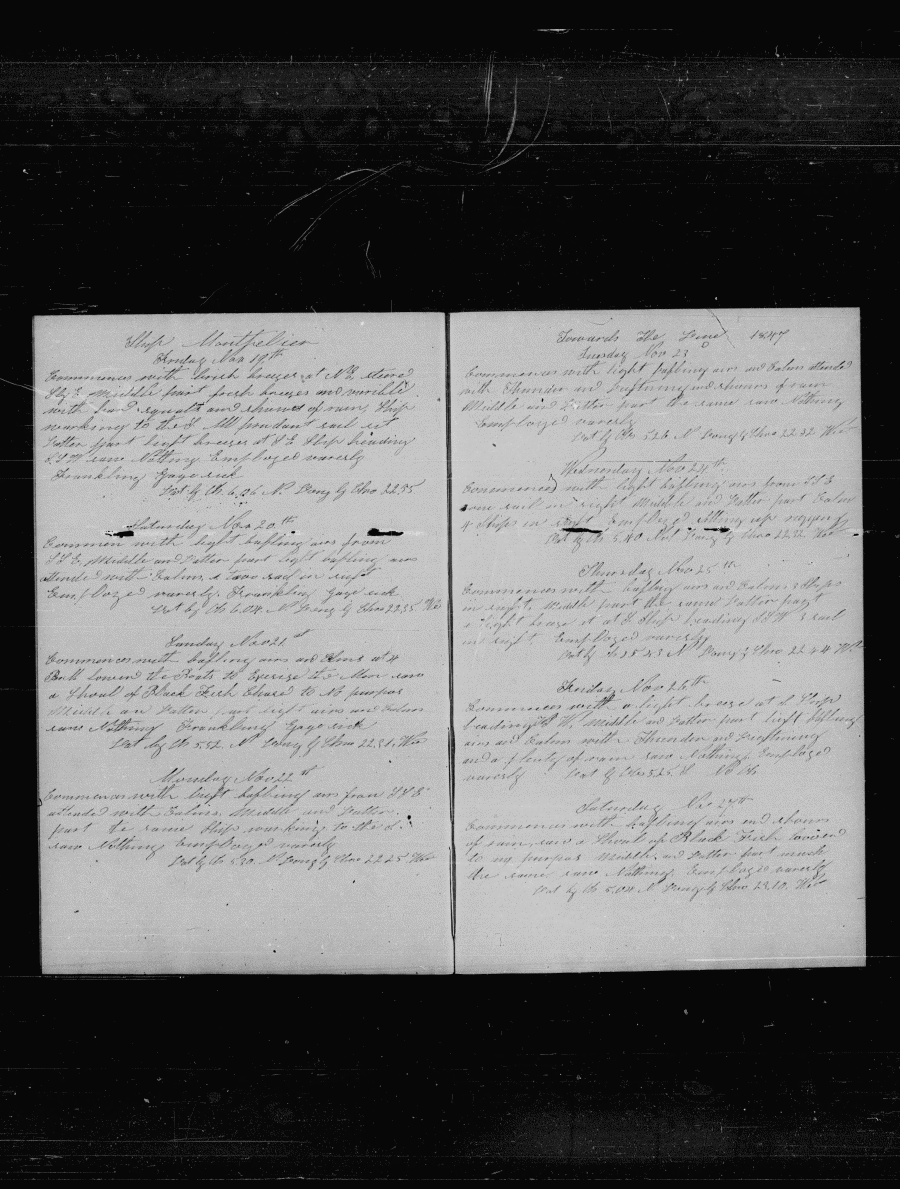 Ship Montpelier
Friday Nov 19th
Commences with brisk breezes at NE steered
SbyE Middle part fresh breezes and varible
with hard squalls and showers of rain Ship
working to the S All prudant sail set
Latter part light breezes at SE Ship heading
SSW saw Nothing Employed varerly
Frankling Gage sick
Lat by Ob 6.06 N Long by Chro 22.55
Saturday Nov 20th
Commen with light bafling airs from
SSE Middle and Latter part light bafling airs
attended with Calms saw sail in sight
Employed varerly Frankling Gage sick
Lat by Ob 6.04 N Long by Chro 22.35 West
Sunday Nov 21st
Commences with bafling airs and Calms at 4
lowered the Boats to Exersize the Men saw
a Shoal of Black Fish Chased to No purpos
Middle an Latter part light airs and Calms
saw Nothing Frankling Gage sick
Lat by Ob 5.52 N Long by Chro 22.31 West
Monday Nov 22st
Commences with light bafling airs from SSE
attended with Calms Middle and Latter
part the same Ship working to the S
saw Nothing Employed varerly
Lat by Ob 5.30 N Long by Chro 22.25 West
Towards the Line 1847
Tuesday Nov 23d
Commences with light bafling airs and Calms attended
with Thunder and Lightning and showers of rain
Middle and Latter part the same saw Nothing
Employed varerly
Lat by Ob 5.26 N Long by Chro 22.32 West
Wednesday Nov 24th
Commences with light bafling airs from SSE
one sail in sight Middle and Latter part Calm
4 Ships in sight Employed setting up riging
Lat by Ob 5.40 N Long by Chro 22.32 West
Thursday Nov 25th
Commences with bafling airs and Calms 3 Ships
in sight Middle part the same Latter part
a light breeze it at S Ship heading SSW 3 sail
in sight Employed varerly
Lat by Ob 5.23 N Long by Chro 22.44 West
Friday Nov 26th
Commences with a light breeze at S Ship
heading W Middle and Latter part light bafling
airs and Calms with Thunder and Lightning
and a plenty of rain saw Nothing Employed
varerly Lat by Ob 5.25 N No Ob
Saturday Nov 27th
Commences with bafling airs and showers
of rain saw a Shoal of Black Fish lowered
to no purpos Middle and Latter part much
the same saw Nothing Employed varerly
Lat by Ob 5.04 N Long by Chro 23.10 West